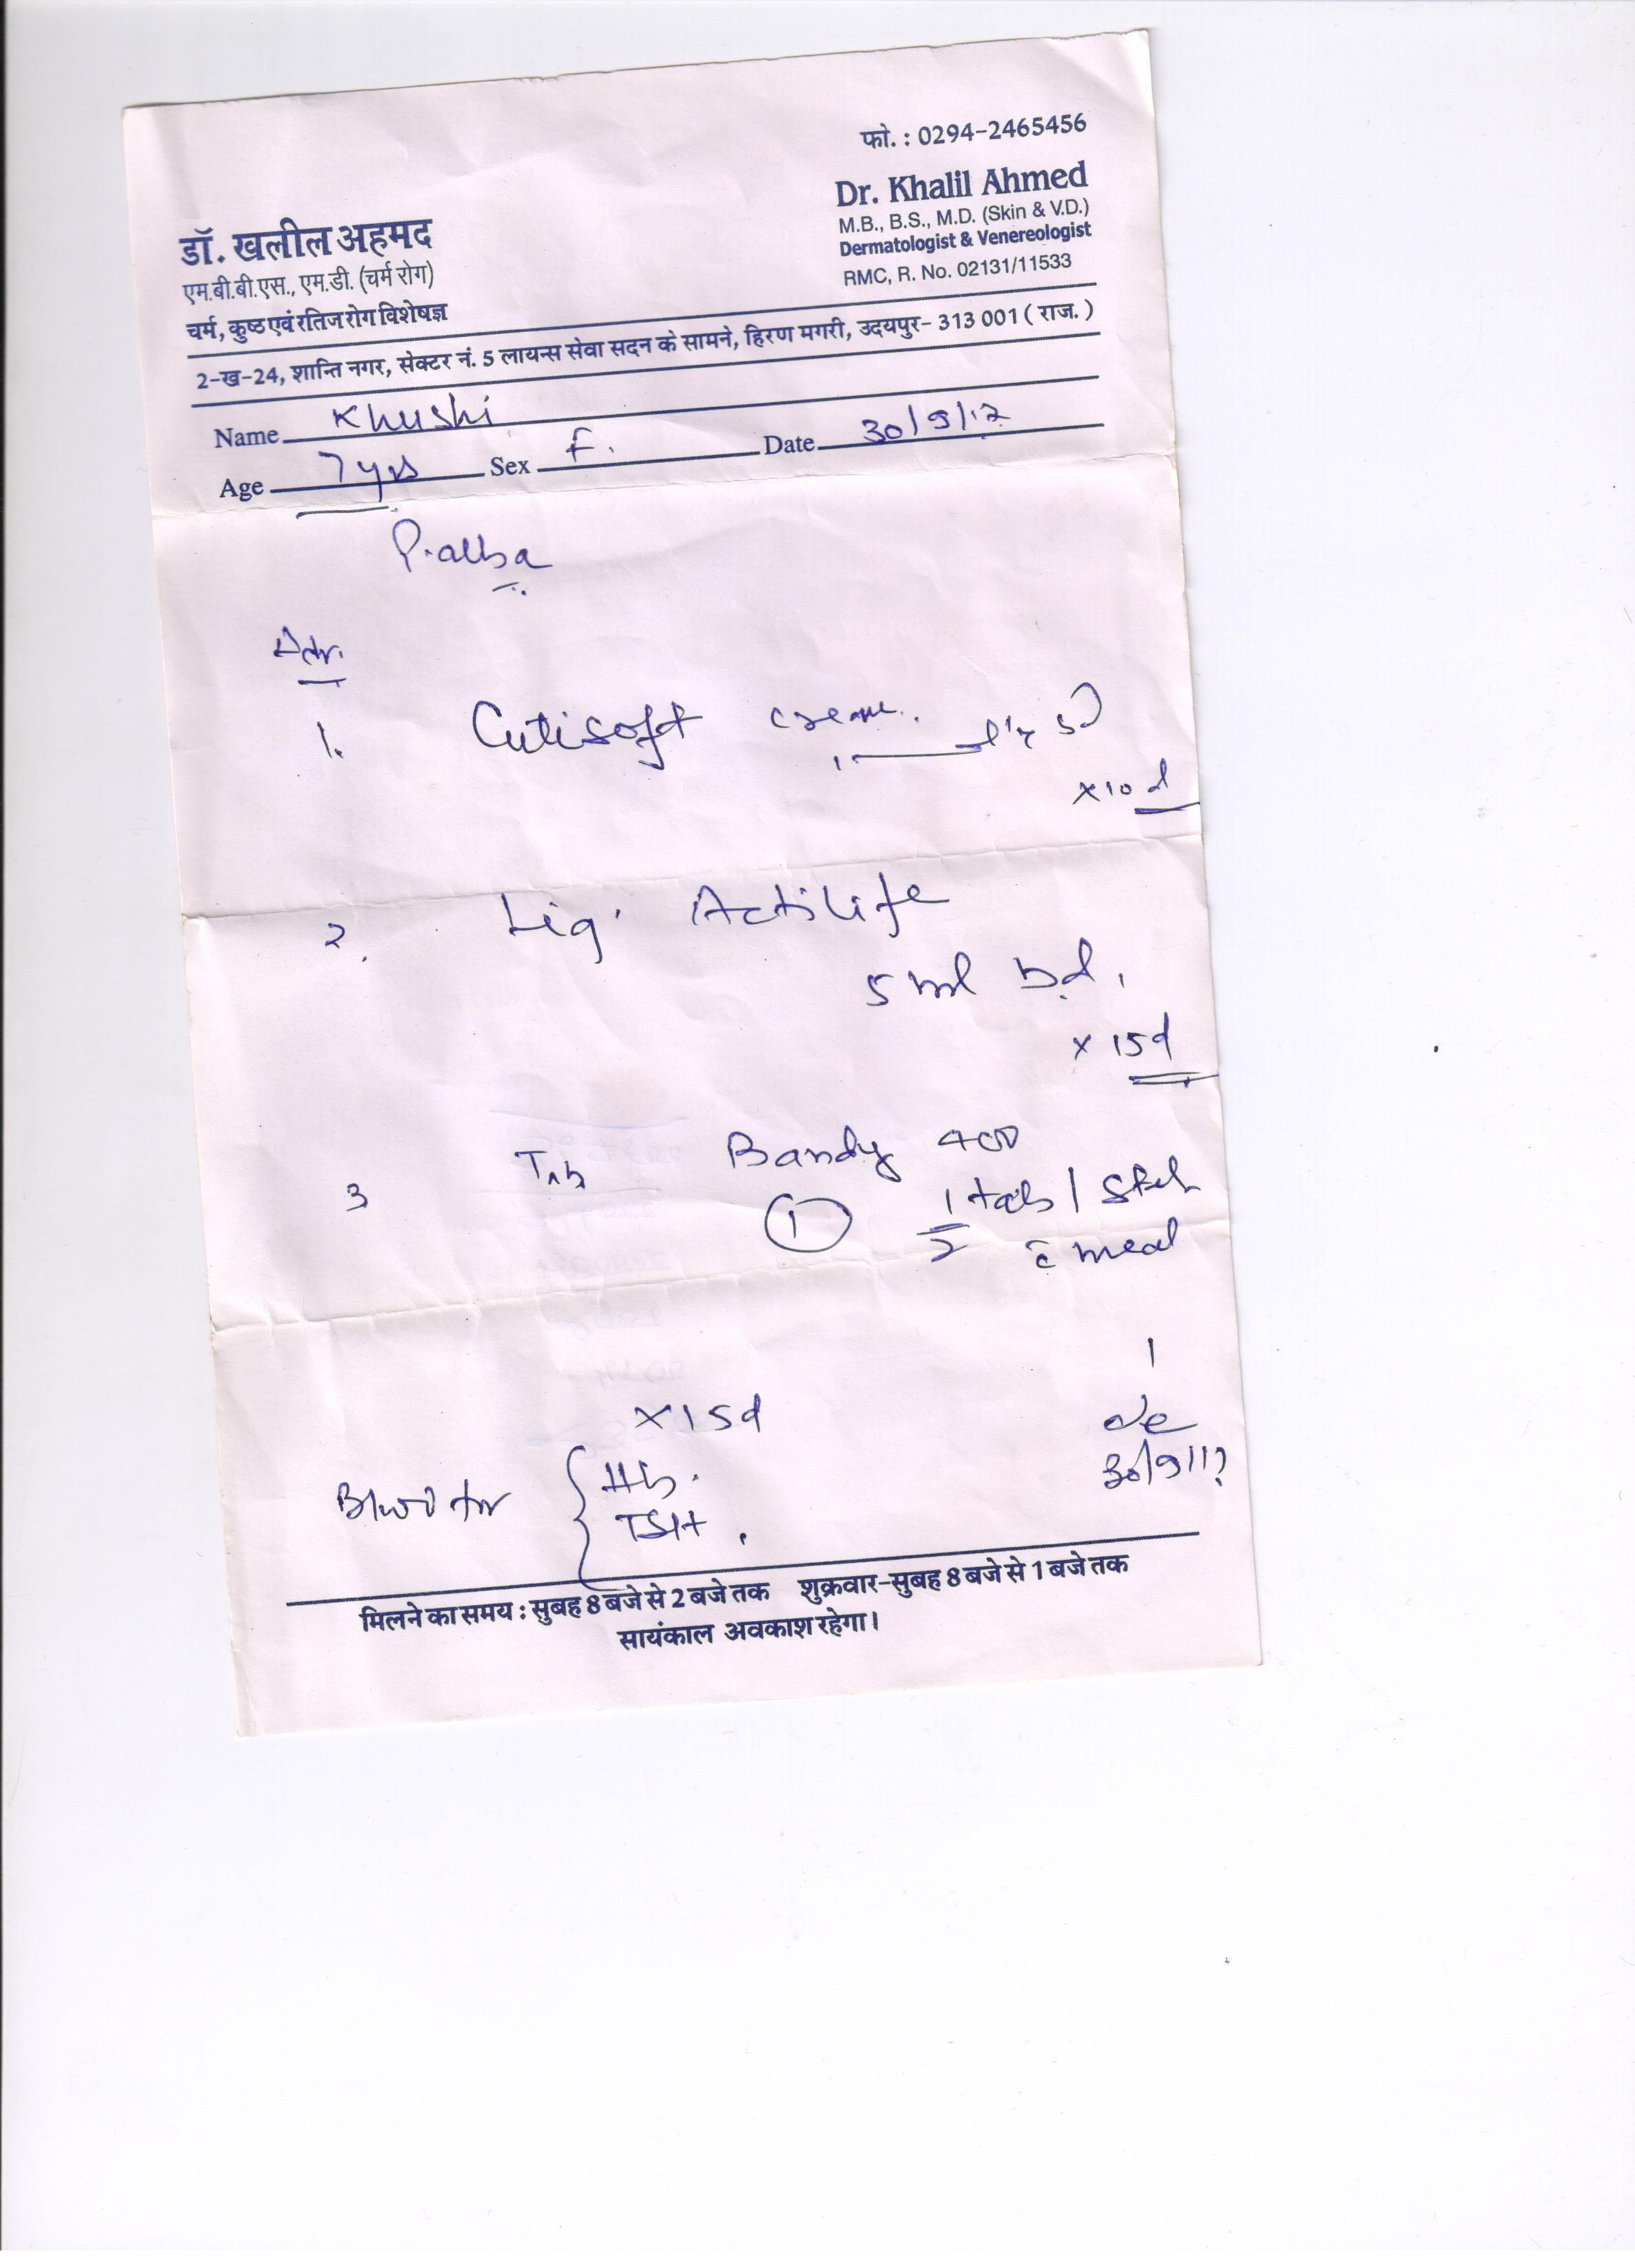 फो. : 0294-2465456
Dr. Khalil Ahmed
M.B., B.S., M.D. (Skin & V.D.)
Dermatologist & Venereologist
RMC, R. No. 02131/11533
डॉ. खलील अहमद
एम.बी.बी.एस., एम.डी. (चर्म रोग)
चर्म, कुष्ठ एवं रतिज रोग विशेषज्ञ
2-ख-24, शान्ति नगर, सेक्टर नं. 5 लायन्स सेवा सदन के सामने, हिरण मगरी, उदयपुर- 313 001 ( राज. )
Name Khushi
Age 7 yrs Sex F. Date 30/9/17
P. alba
Adv.
1. Cutisoft cream.
x 10 d
2. Liq. Actilife
5 ml b.d.
x 15d
3 Tab Bandy 400
1 1/2 tab / stat
c̄ meal
x 15d
Blood for { Hb.
TSH.
30/9/17
मिलने का समय : सुबह 8 बजे से 2 बजे तक शुक्रवार-सुबह 8 बजे से 1 बजे तक
सायंकाल अवकाश रहेगा।